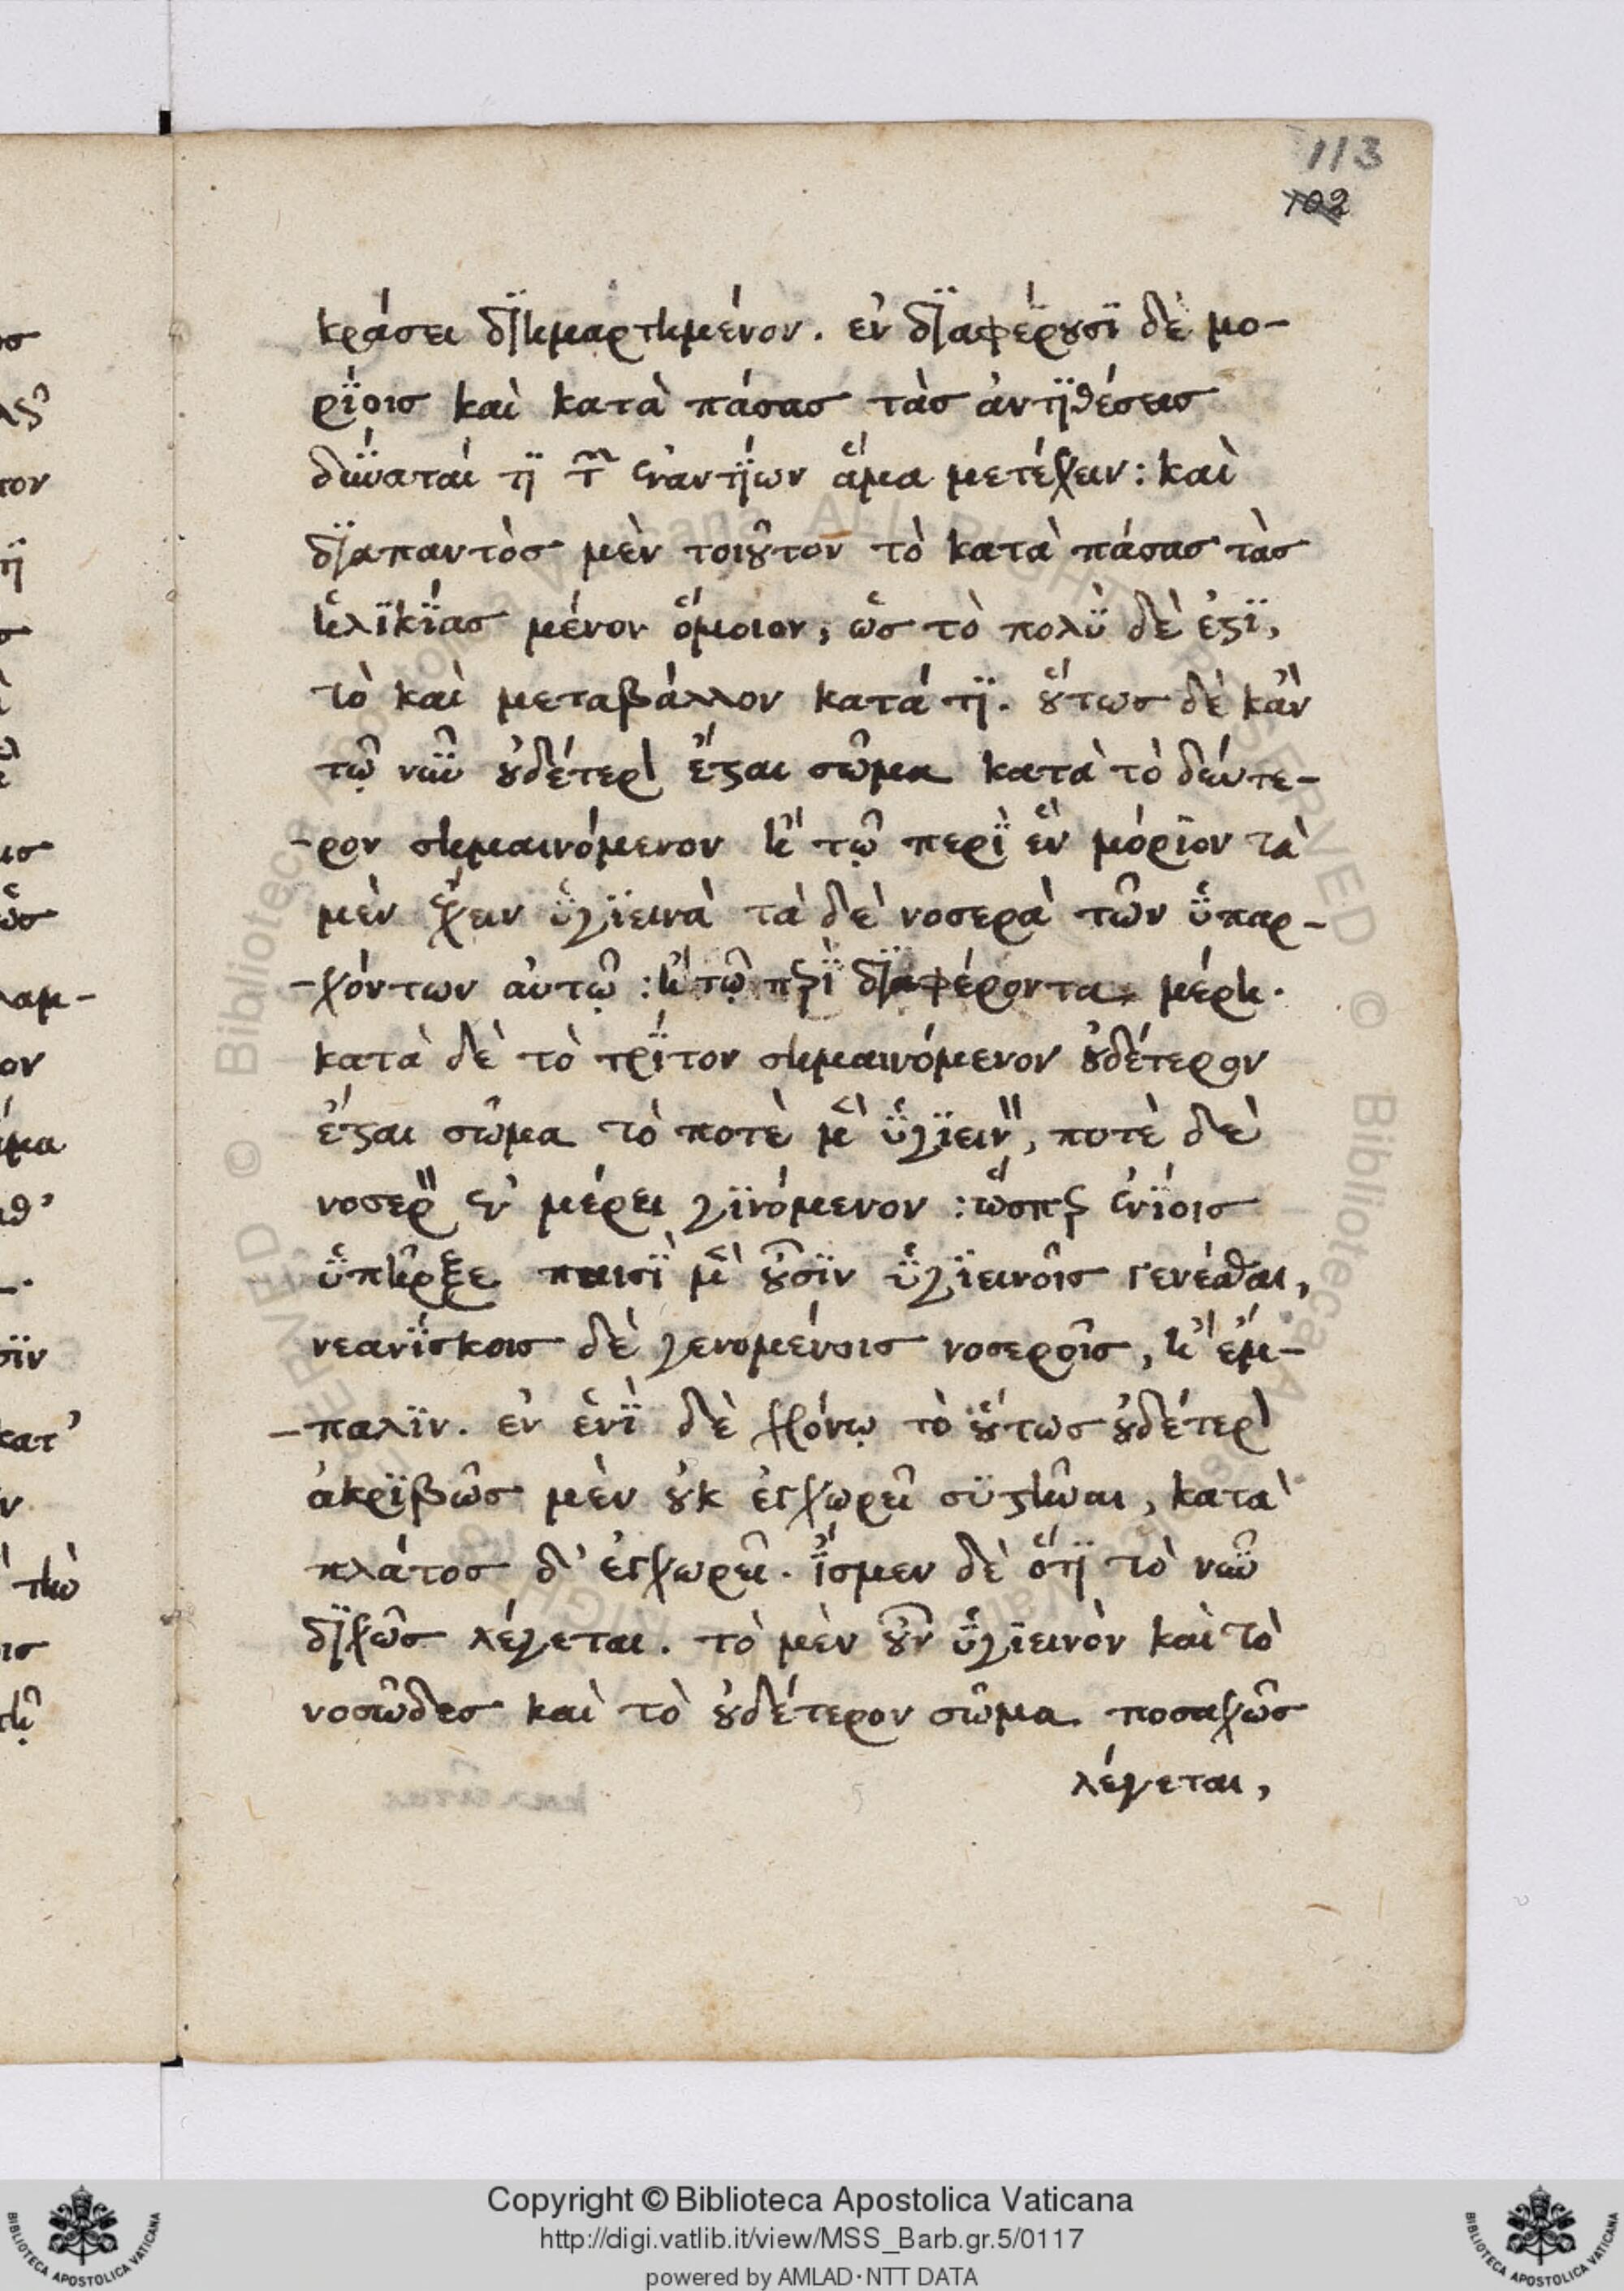 113
102
κράσει διημαρτημένον. ἐν διαφέρουσι δὲ μο-
ρίοις καὶ κατὰ πάσας τὰς ἀντιθέσεις
δύναταί τι τῶν ἐναντίων ἅμα μετέχειν: καὶ
διαπαντὸς μὲν τοιοῦτον τὸ κατὰ πάσας τὰς
ἡλικίας μένον ὅμοιον, ὡς τὸ πολὺ δὲ ἐστι,
τὸ καὶ μεταβάλλον κατά τι. οὕτως δὲ κἂν
τῷ νῦν οὐδέτερον ἔσται σῶμα κατὰ τὸ δεύτε-
-ρον σημαινόμενον ἢ τῷ περὶ ἓν μόριον τὰ
μὲν ἔχειν ὑγιεινὰ τὰ δὲ νοσερὰ τῶν ὑπαρ-
-χόντων αὐτῷ: ἢ τῷ περὶ διαφέροντα μέρη.
κατὰ δὲ τὸ τρίτον σημαινόμενον οὐδέτερον
ἔσται σῶμα τὸ ποτὲ μὲν ὑγιεινὸν, ποτὲ δὲ
νοσερὸν ἐν μέρει γινόμενον: ὥσπερ ἐνίοις
ὑπῆρξε παισὶ μὲν οὖσιν ὑγιεινοῖς γενέσθαι,
νεανίσκοις δὲ γενομένοις νοσεροῖς, ἢ ἔμ-
-παλιν. ἐν ἑνὶ δὲ χρόνῳ τὸ οὕτως οὐδέτερον
ἀκριβῶς μὲν οὐκ ἐγχωρεῖ συστῆναι, κατὰ
πλάτος δ' ἐγχωρεῖ. ἴσμεν δὲ ὅτι τὸ νῦν
διχῶς λέγεται. τὸ μὲν οὖν ὑγιεινὸν καὶ τὸ
νοσῶδες καὶ τὸ οὐδέτερον σῶμα ποσαχῶς
λέγεται,
Copyright © Biblioteca Apostolica Vaticana
http://digi.vatlib.it/view/MSS_Barb.gr.5/0117
powered by AMLAD·NTT DATA
BIBLIOTECA APOSTOLICA VATICANA
BIBLIOTECA APOSTOLICA VATICANA